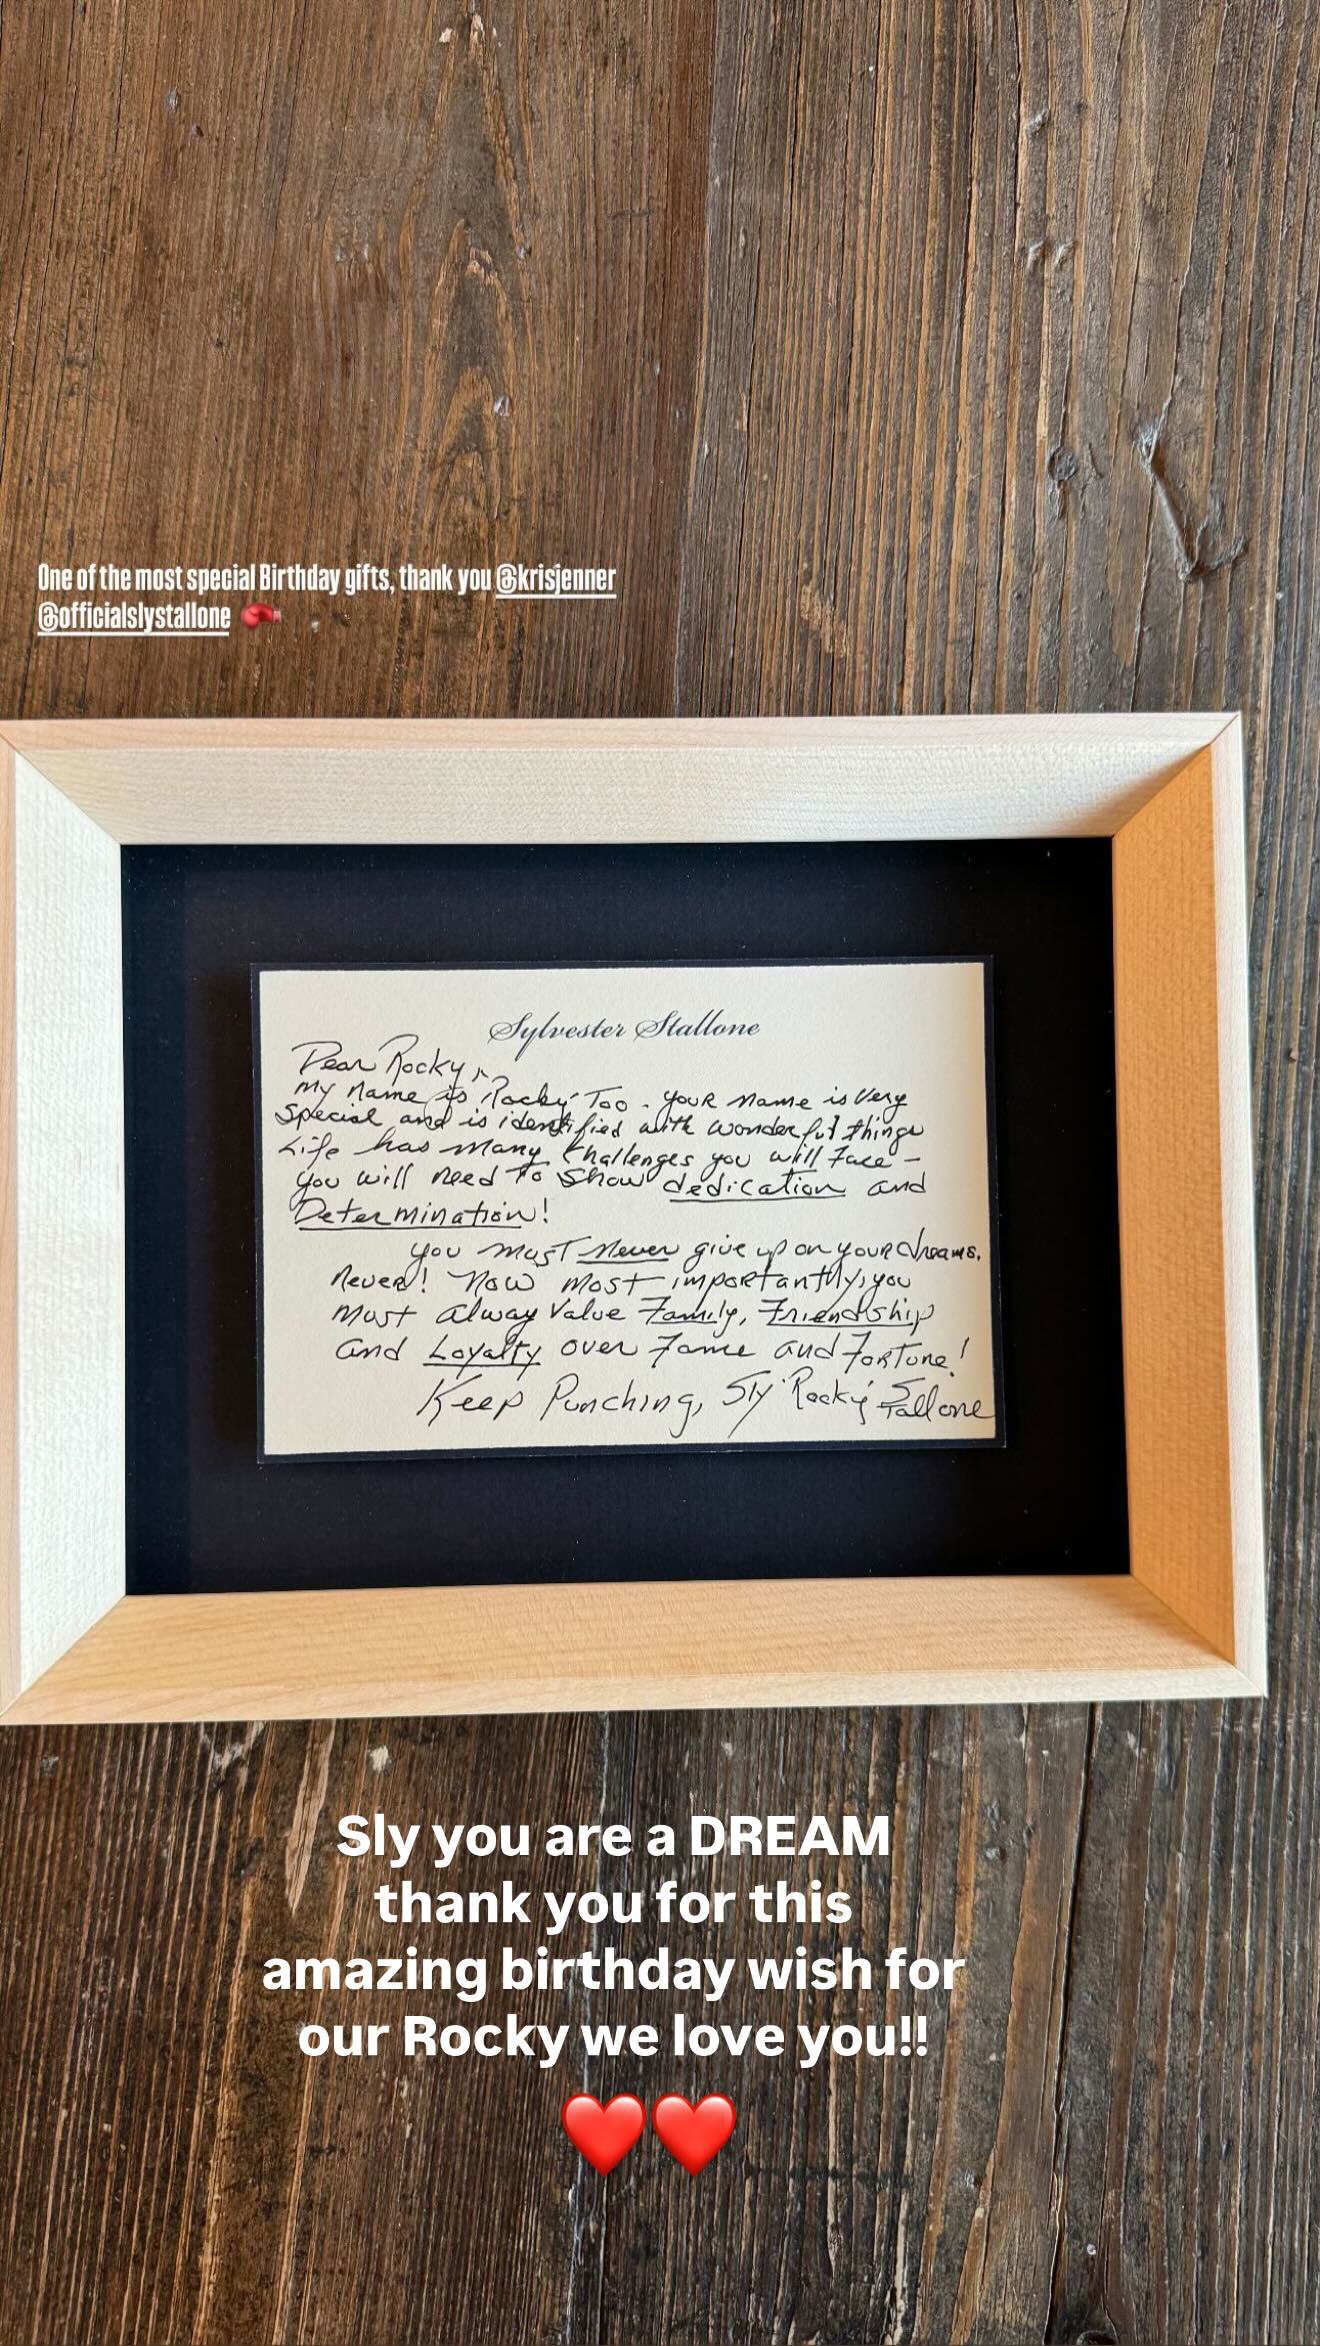 One of the most special Birthday gifts, thank you @krisjenner
@officialslystallone 🥊
Sylvester Stallone
Dear Rocky,
My Name is 'Rocky' Too. Your name is Very
Special and is identified with wonderful things
Life has many Challenges you will Face -
You will need To Show dedication and
Determination!
You must Never give up on your dreams.
Never! Now most importantly, you
Must alway Value Family, Friendship
and Loyalty over Fame and Fortune!
Keep Punching, Sly 'Rocky' Stallone
Sly you are a DREAM
thank you for this
amazing birthday wish for
our Rocky we love you!!
❤️❤️